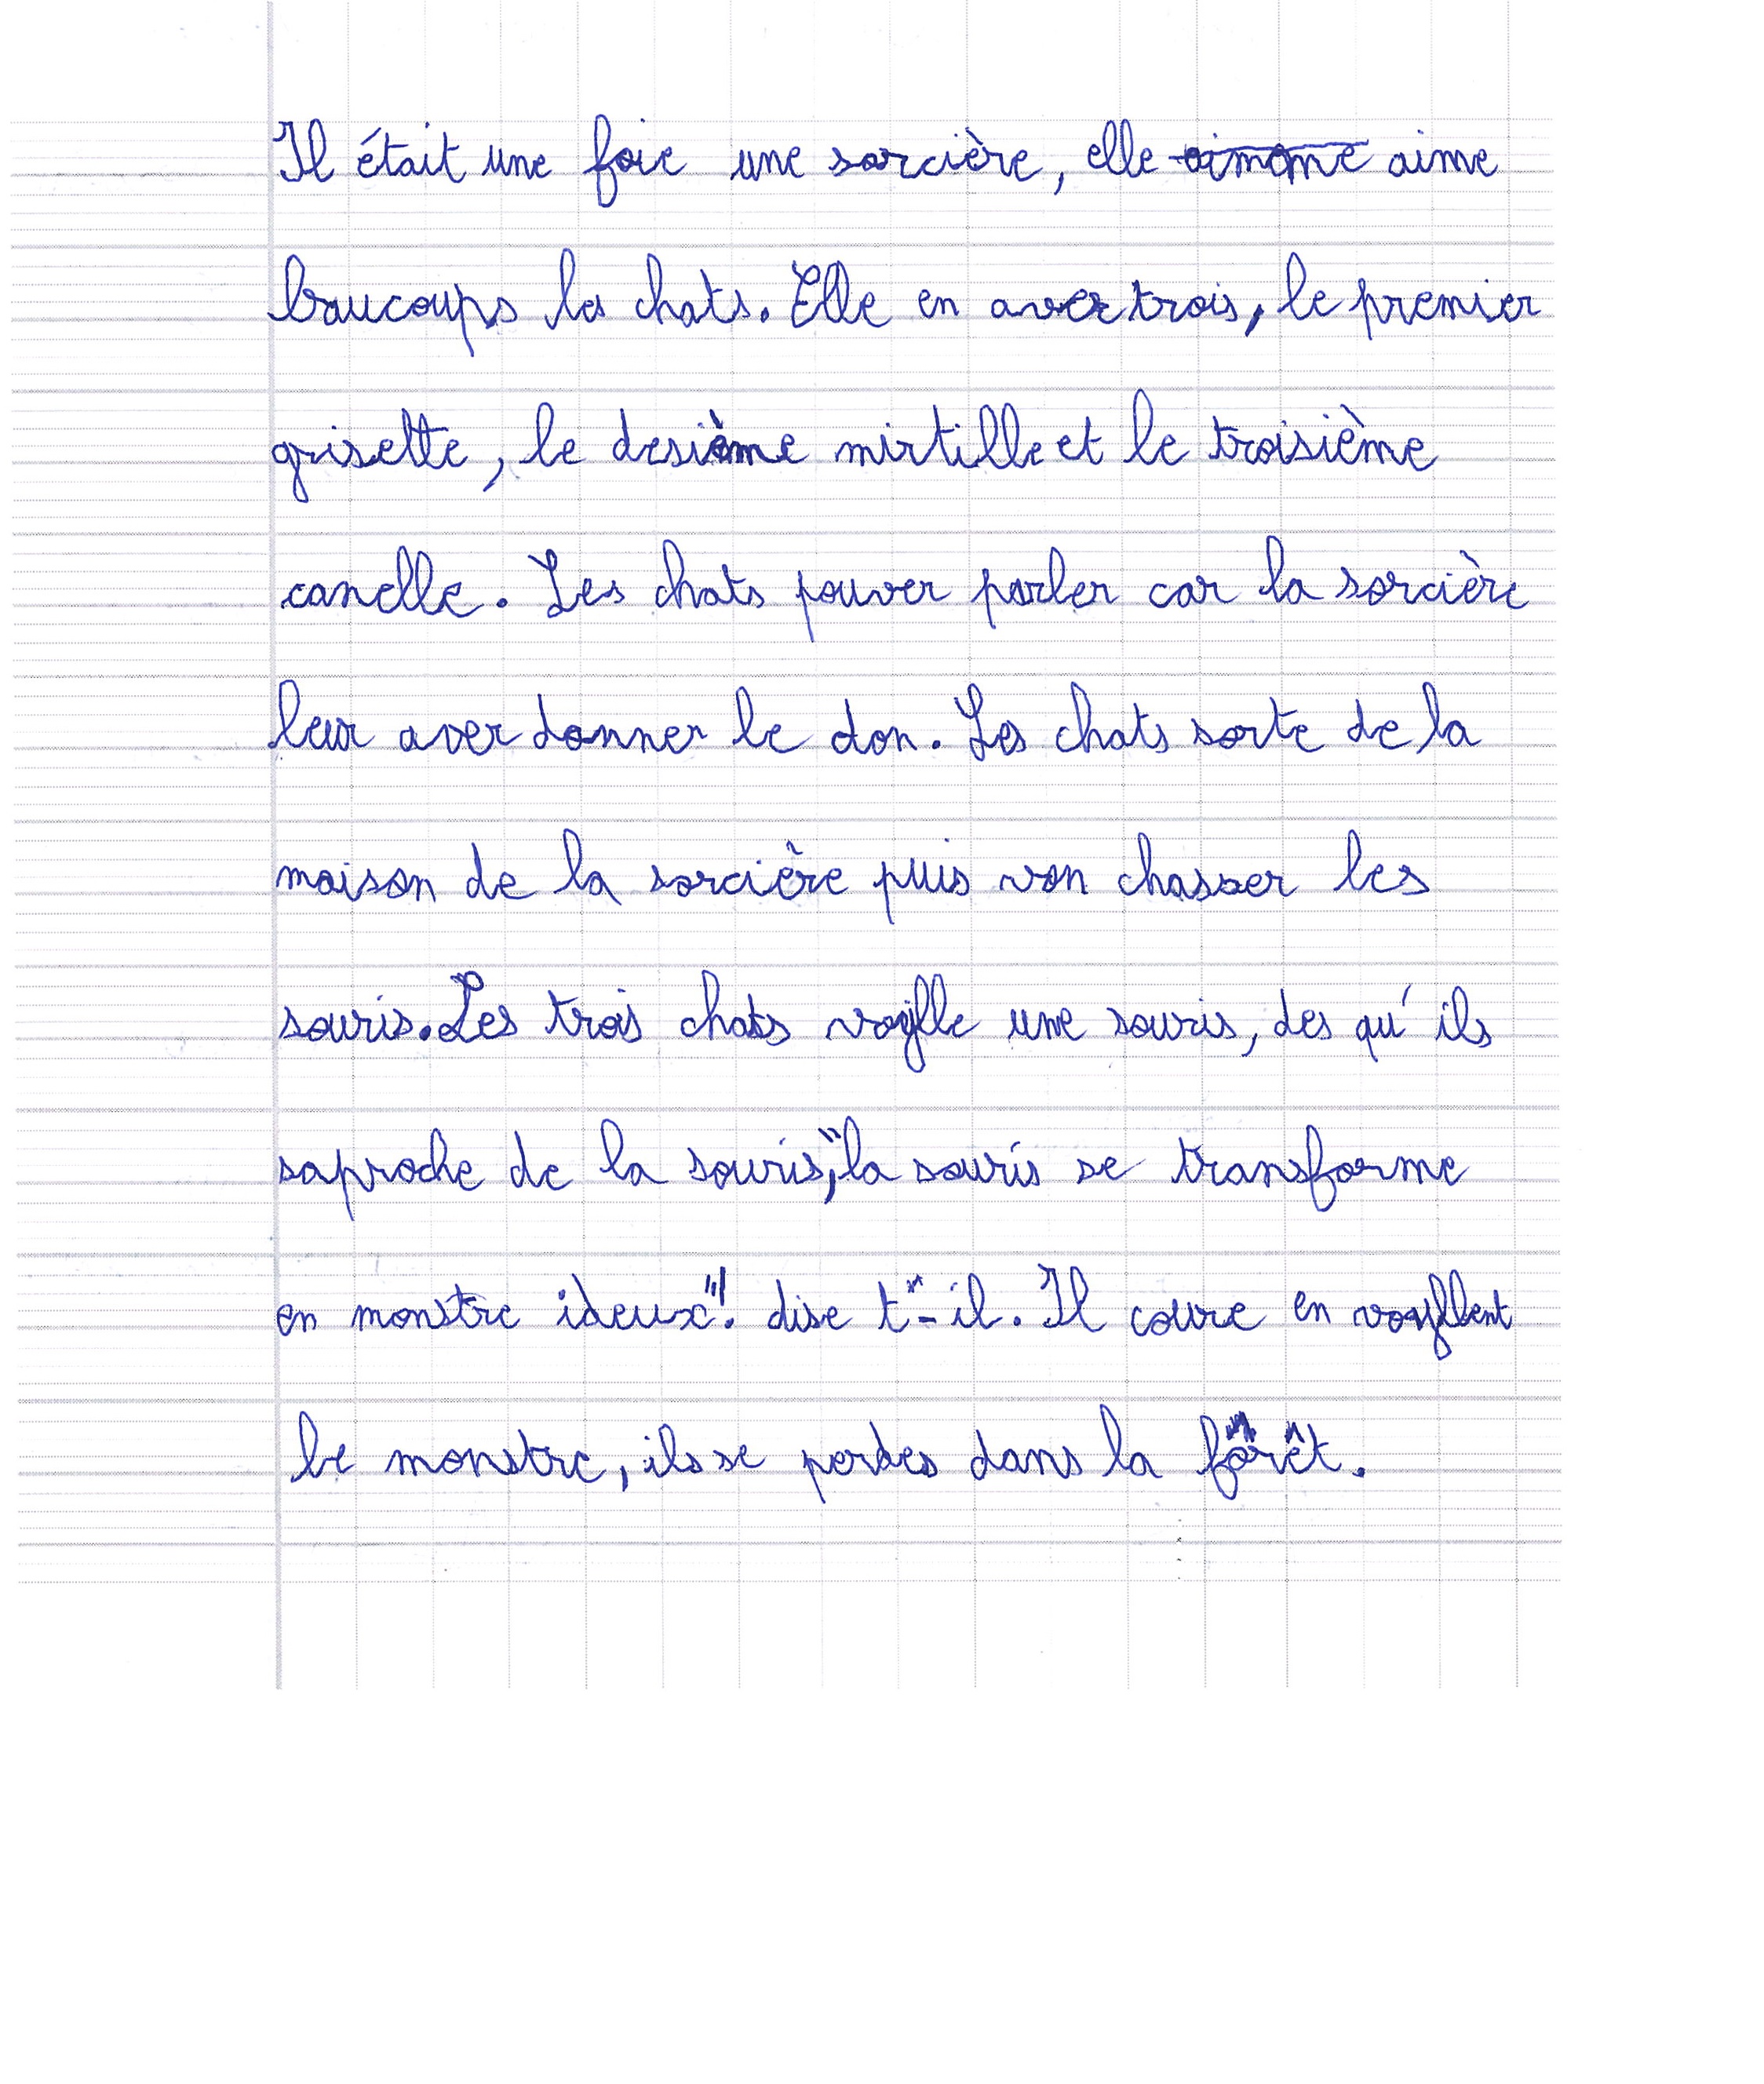 Il était une foie une sorcière, elle aime
baucoups les chats. Elle en aver trois, le premier
grisette, le desième mirtille et le troisième
canelle. Les chats pouver parler car la sorcière
leur aver donner le don. Les chats sorte de la
maison de la sorcière puis von chasser les
souris. Les trois chats voylle une souris, des qu'ils
saproche de la souris, "la souris se transforme
en monstre ideux"! dise t-il. Il coure en voyllent
le monstre, ils se perdes dans la forêt.